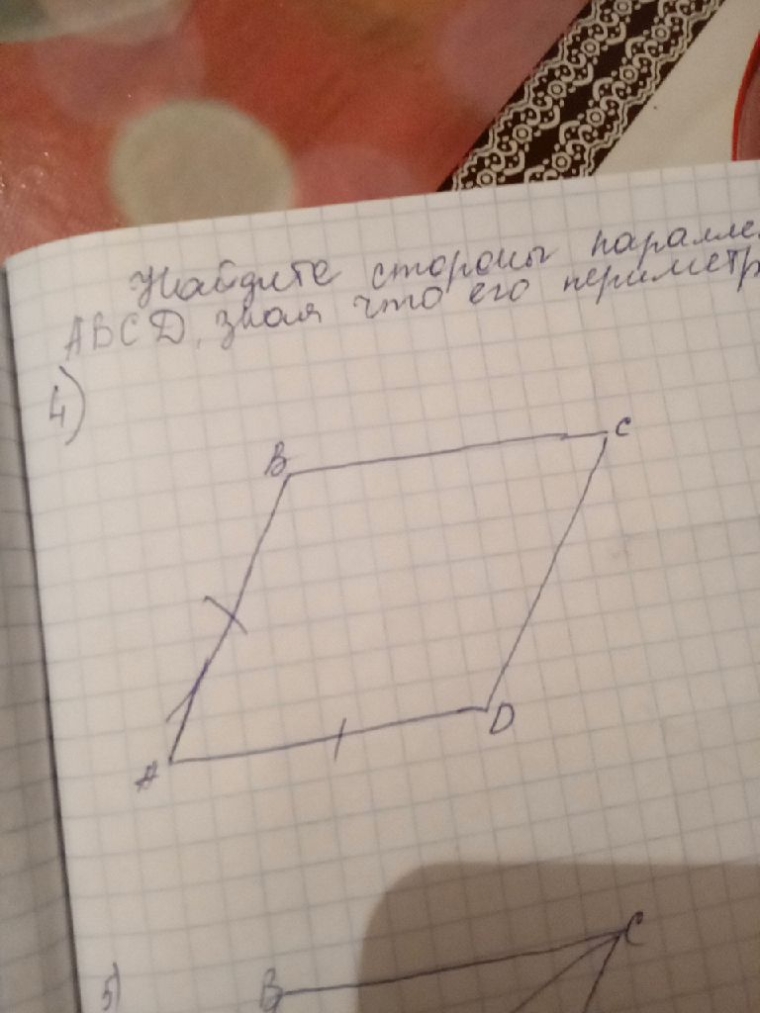 Найдите стороны паралле
ABCD, зная что его периметр
4)
B
C
A
D
5)
C
B